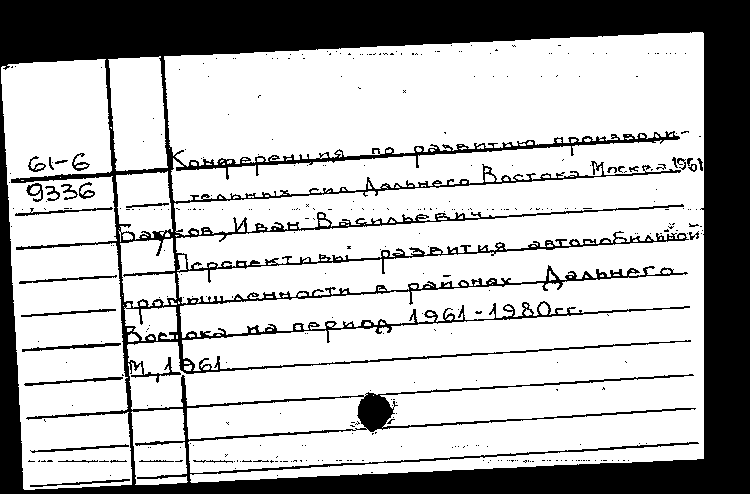 61-6
9336
Конференция по развитию производи-
тельных сил Дальнего Востока Москва, 1961
Иван Васильевич.
Перспективы развития автомобильной
промышленности в районах Дальнего
Востока на период 1961-1980гг.
М., 1961.